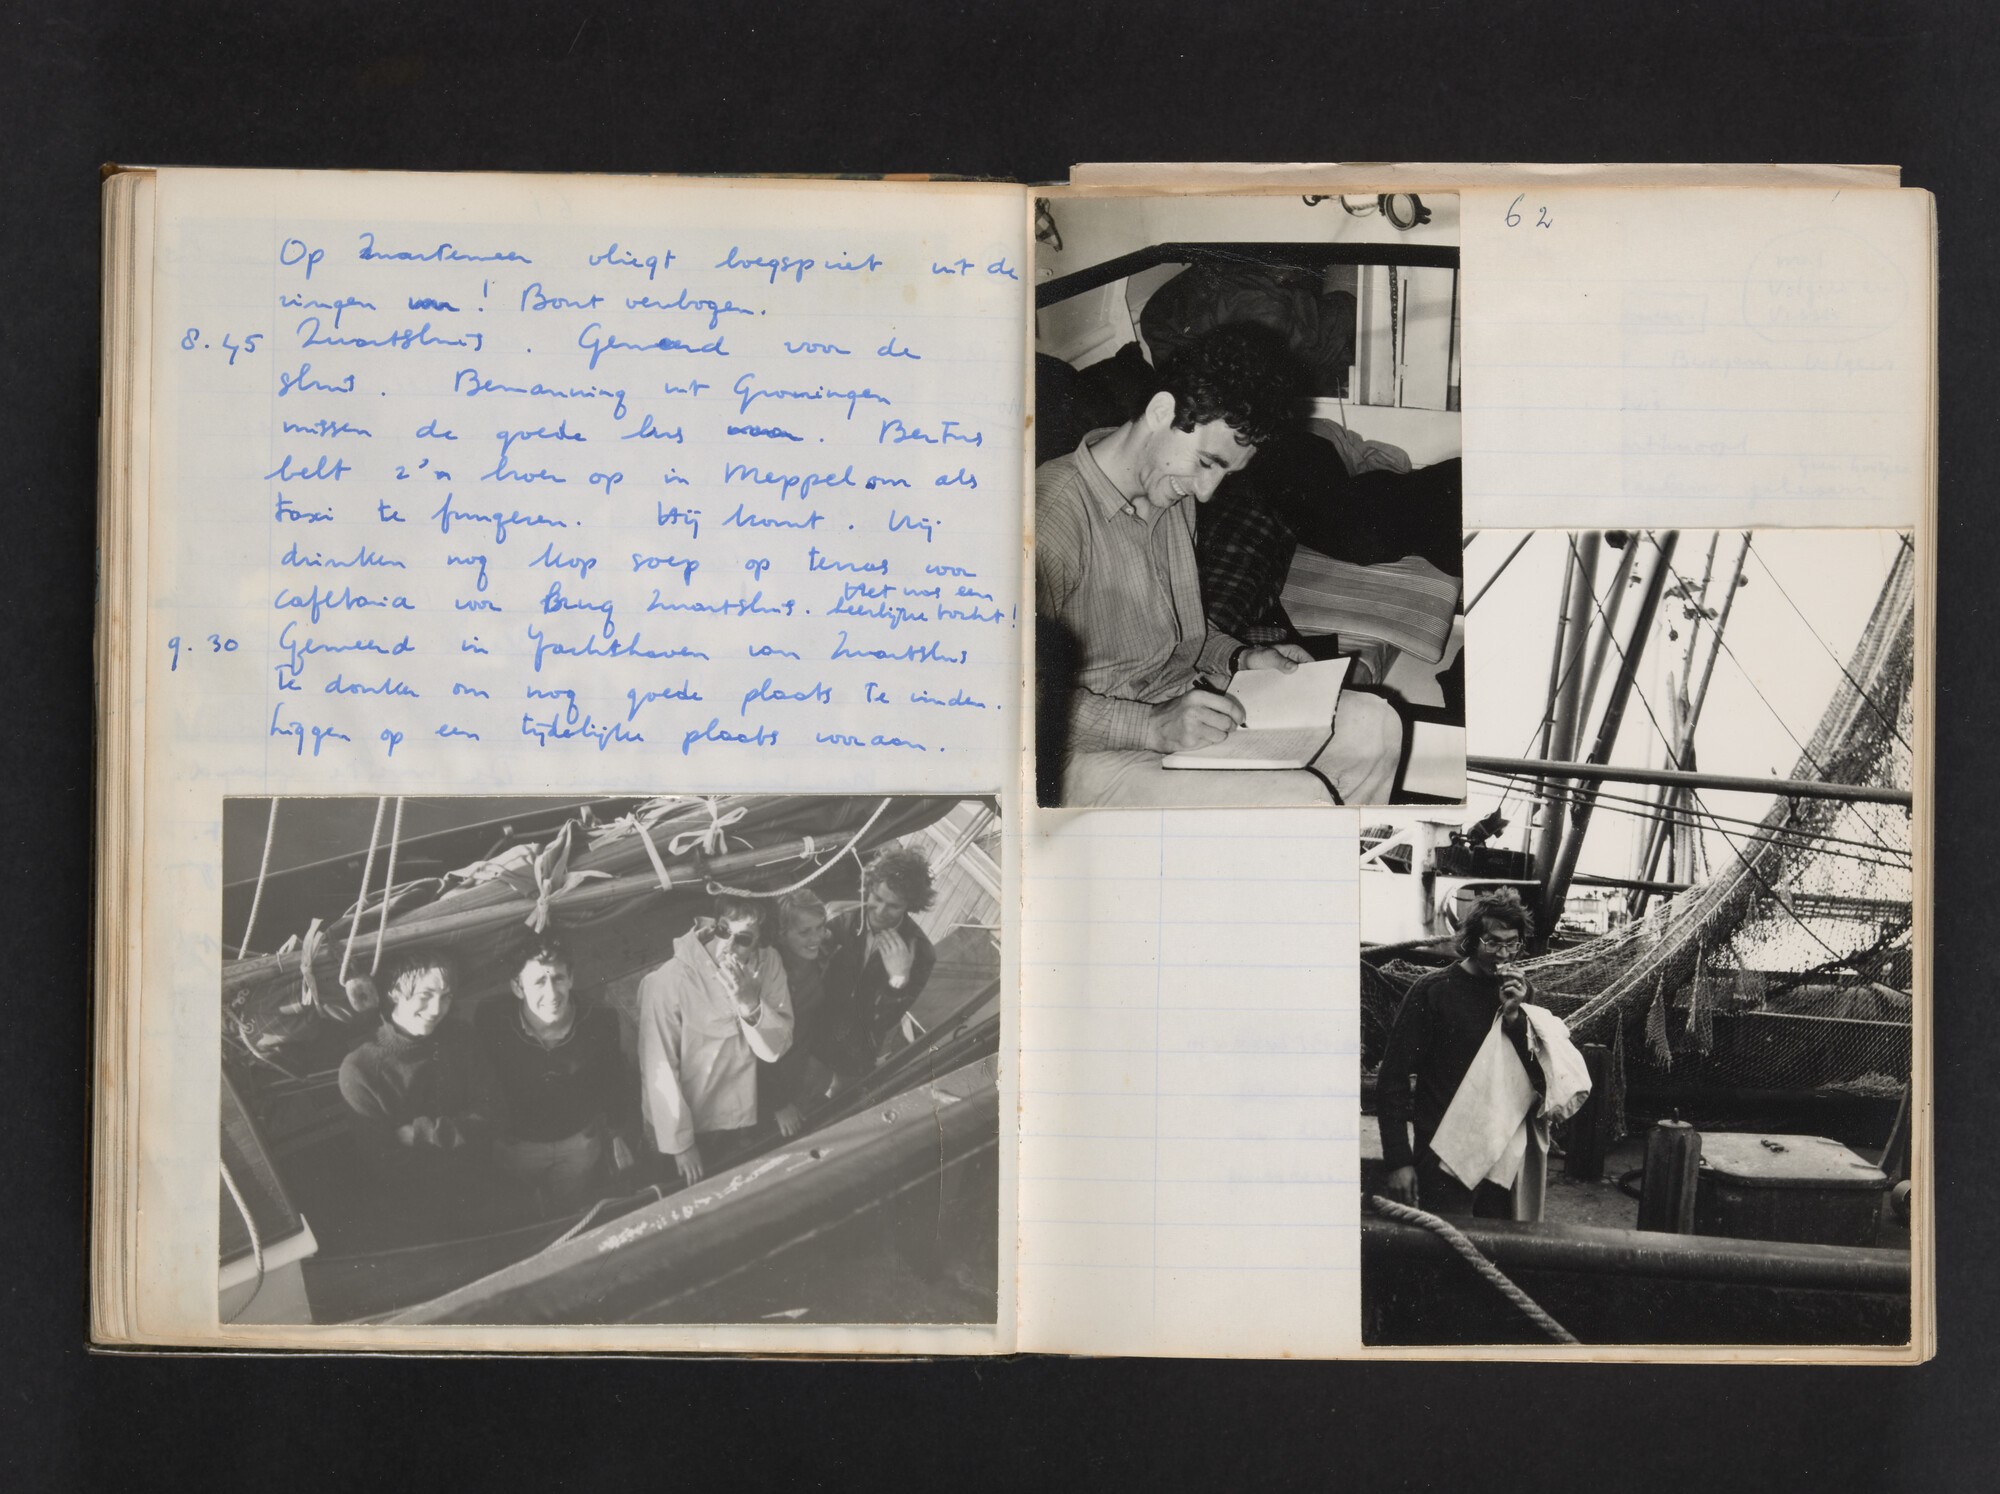 Op Zwartemeer vliegt boegspriet uit de
ringen ! Bout verbogen.
8.45 Zwartsluis. Gemeerd voor de
sluis. Bemanning uit Groningen
missen de goede bus . Bertus
belt z'n broer op in Meppel om als
taxi te fungeren. Hij komt. Wij
drinken nog kop soep op terras voor
cafetaria voor Brug Zwartsluis. Het was een
heerlijke tocht!
9.30 Gemeerd in Jachthaven van Zwartsluis
te donker om nog goede plaats te vinden.
Liggen op een tijdelijke plaats vooraan.
62